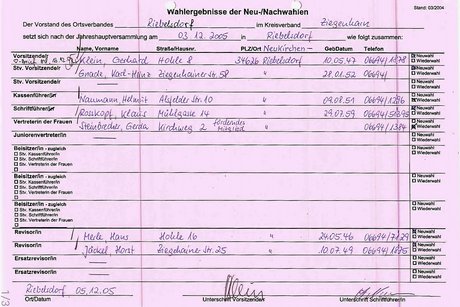 Wahlergebnisse der Neu-/Nachwahlen
Stand: 03/2004
Der Vorstand des Ortsverbandes Riebelsdorf im Kreisverband Ziegenhain
setzt sich nach der Jahreshauptversammlung am 03.12.2005 in Riebelsdorf wie folgt zusammen:
Name, Vorname Straße/Hausnr. PLZ/Ort Neukirchen- GebDatum Telefon
Vorsitzende/r Klein, Gerhard Hohle 8 34626 Riebelsdorf 10.05.47 06694/ Neuwahl
Wiederwahl
Stv. Vorsitzende/r Gnade, Karl-Heinz Ziegenhainer Str. 58 " 28.01.52 06694/ Neuwahl
Wiederwahl
Kassenführer/in Naumann, Helmut Alsfelder Str. 10 " 09.08.51 06694/ Neuwahl
Wiederwahl
Schriftführer/in Rosskopf, Klaus Mühlgasse 14 " 29.07.59 06694/ Neuwahl
Wiederwahl
Vertreter/in der Frauen Steinbrecher, Gerda Kirchweg 2 förderndes Mitglied " 06694/1384 Neuwahl
Wiederwahl
Juniorenvertreter/in Neuwahl
Wiederwahl
Beisitzer/in - zugleich
Stv. Kassenführer/in
Stv. Schriftführer/in
Stv. Vertreterin der Frauen
Neuwahl
Wiederwahl
Beisitzer/in - zugleich
Stv. Kassenführer/in
Stv. Schriftführer/in
Stv. Vertreterin der Frauen
Neuwahl
Wiederwahl
Beisitzer/in - zugleich
Stv. Kassenführer/in
Stv. Schriftführer/in
Stv. Vertreterin der Frauen
Neuwahl
Wiederwahl
Revisor/in Merle, Hans Hohle 16 " 24.05.46 06694/ Neuwahl
Wiederwahl
Revisor/in Jäckel, Horst Ziegenhainer Str. 25 " 10.07.49 06694/ Neuwahl
Wiederwahl
Ersatzrevisor/in Neuwahl
Wiederwahl
Ersatzrevisor/in Neuwahl
Wiederwahl
Riebelsdorf 05.12.05
Ort/Datum Unterschrift Vorsitzende/r Unterschrift Schriftführer/in
1/3